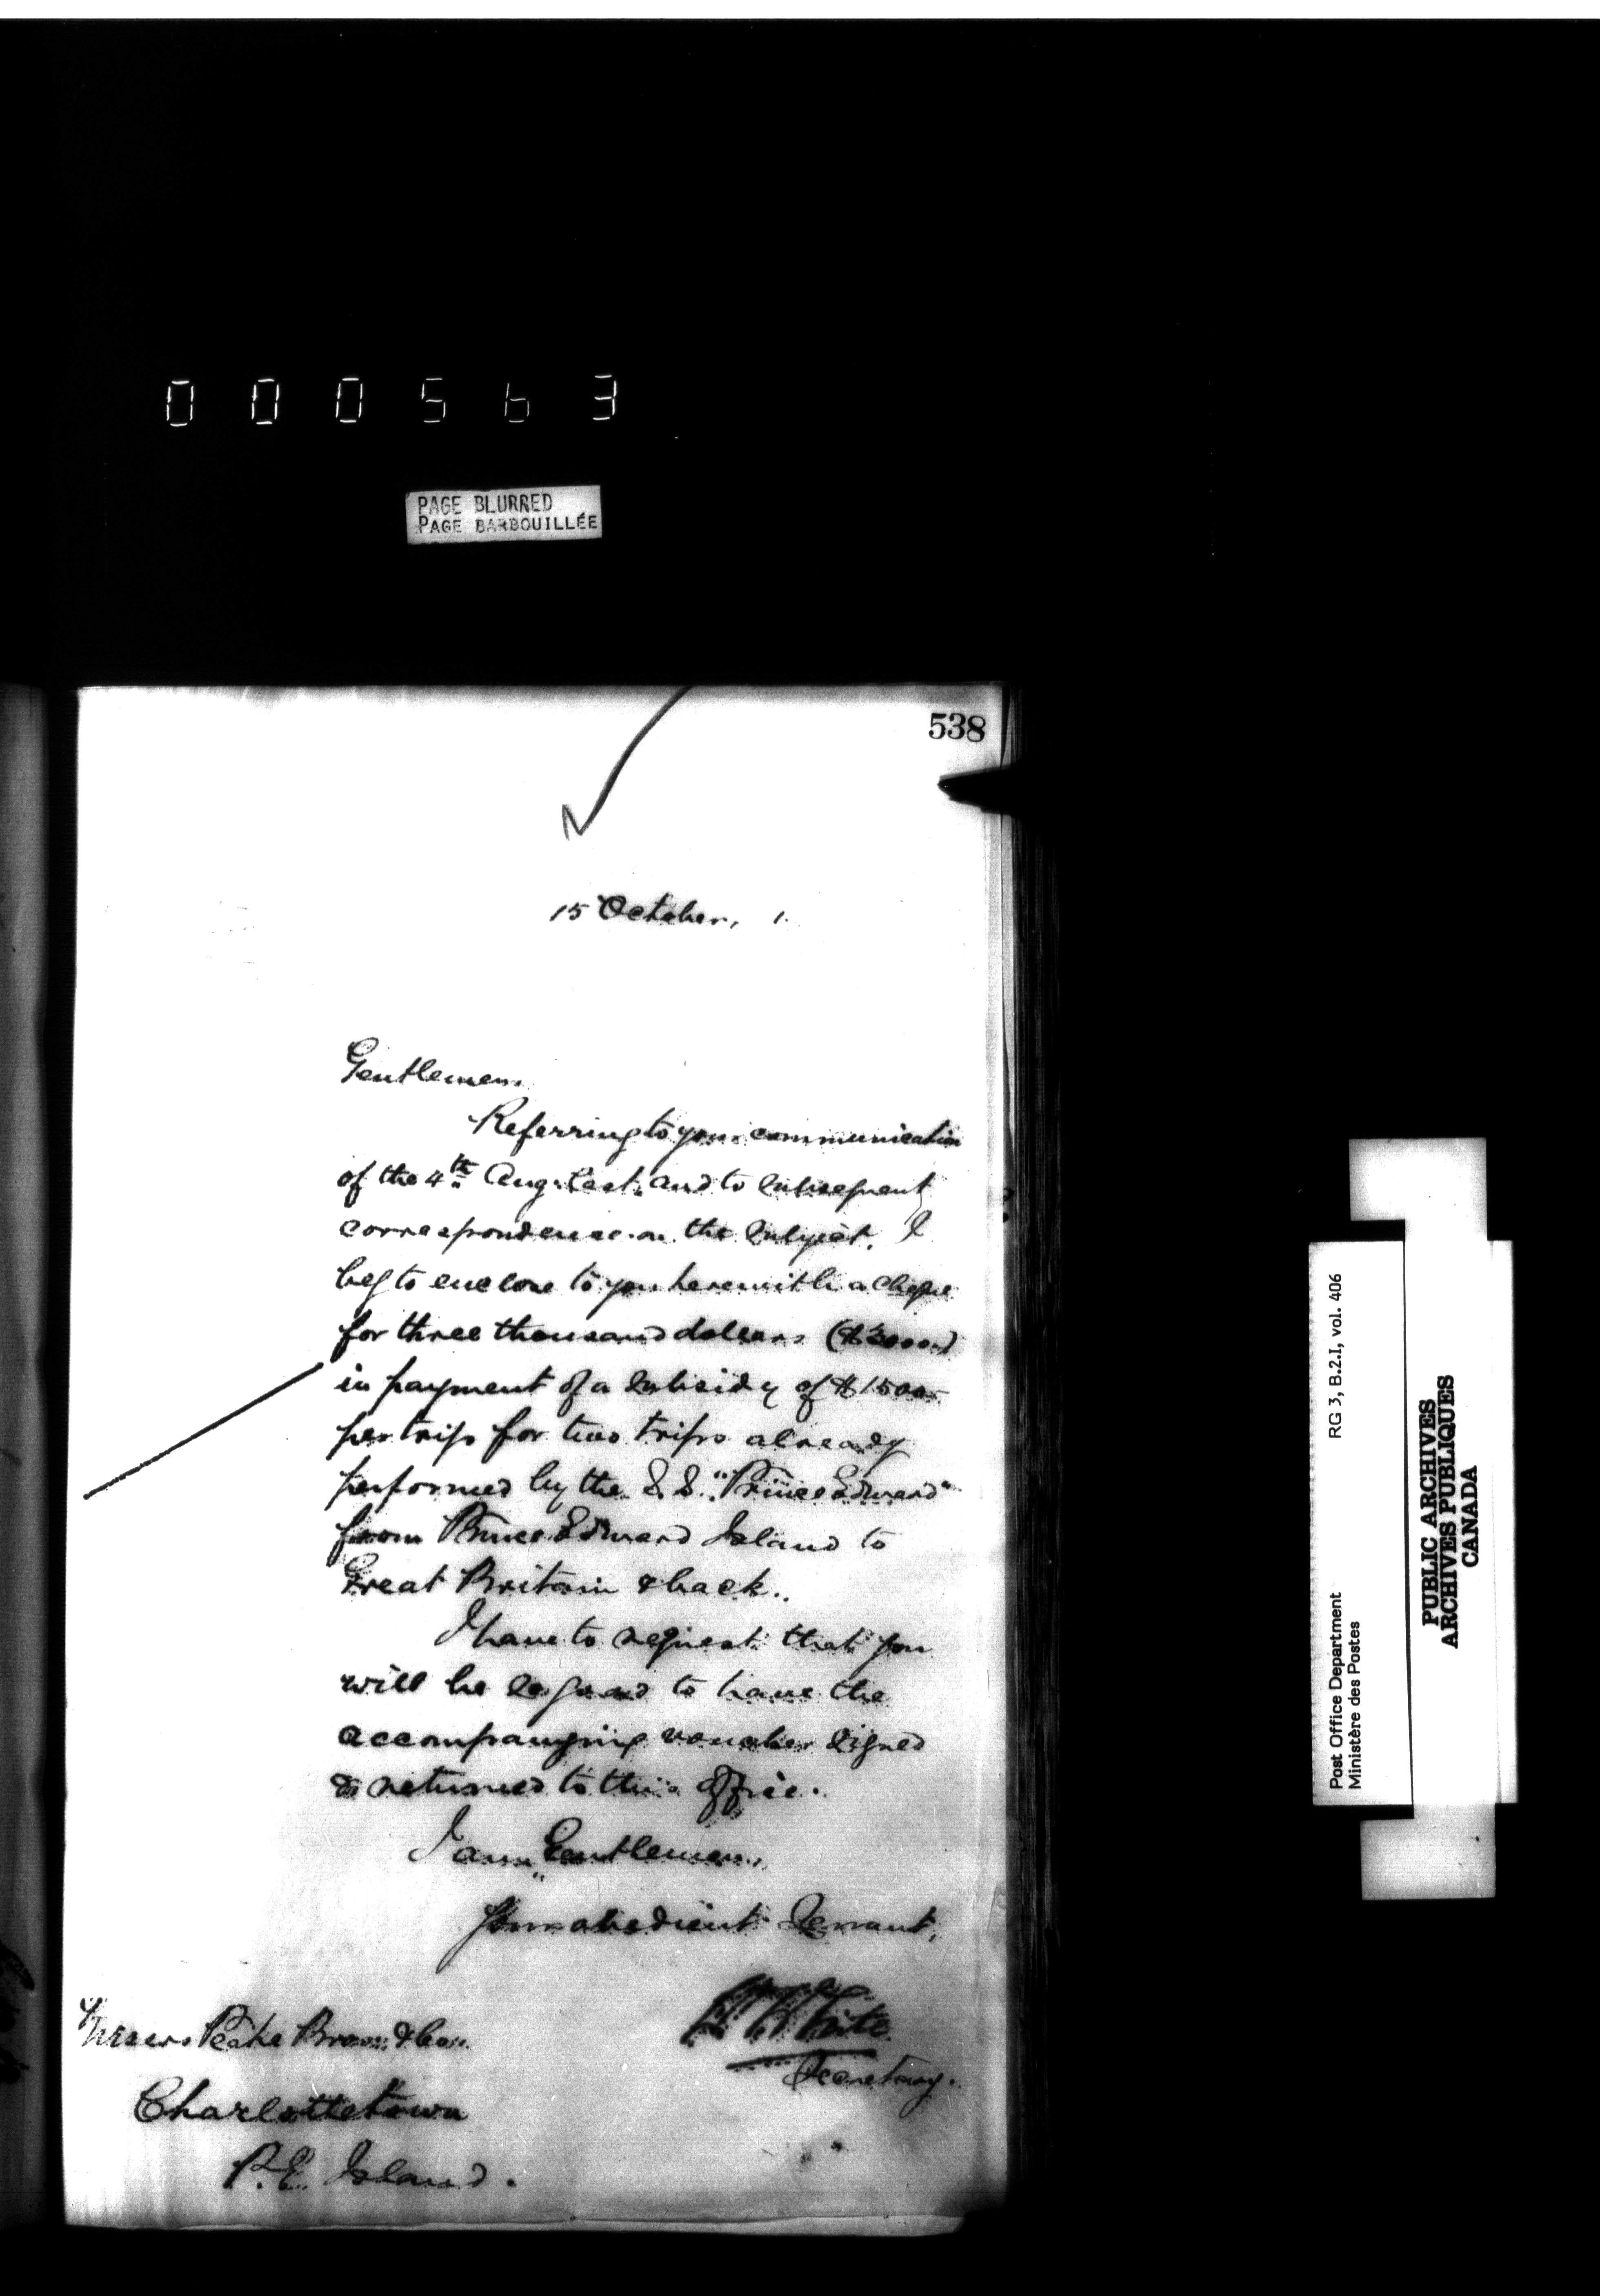 000563
PAGE BLURRED
PAGE BARBOUILLÉE
538
15 October, 1
Gentlemen.
Referring to your communication
of the 4th Aug. last, and to subsequent
correspondence on the subject, I
beg to enclose to you herewith a cheque
for three thousand dollars ($3000)
in payment of a subsidy of $1500
per trip for two trips already
performed by the S.S. "Prince Edward"
from Prince Edward Island to
Great Britain & back.
I have to request that you
will be so good to have the
accompanying voucher signed
& returned to this office.
I am, Gentlemen,
Your obedient Servant,
White
Secretary.
Messrs Peake Bros. & Co.
Charlottetown
P.E. Island.
RG 3, B.2.I, vol. 406
Post Office Department
Ministère des Postes
PUBLIC ARCHIVES
ARCHIVES PUBLIQUES
CANADA